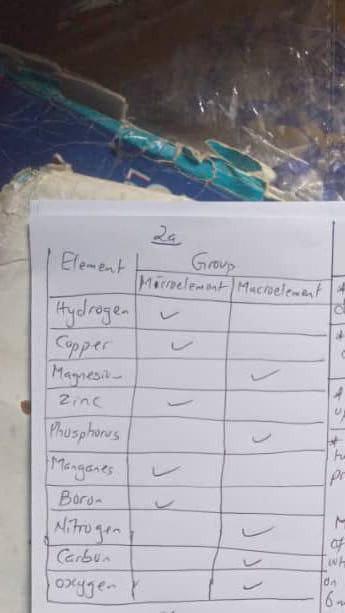 2a
Element Group
Microelement Macroelement
Hydrogen ✓
Copper ✓
Magnesium ✓
Zinc ✓
Phosphorus ✓
Manganes ✓
Boron ✓
Nitrogen ✓
Carbon ✓
oxygen ✓